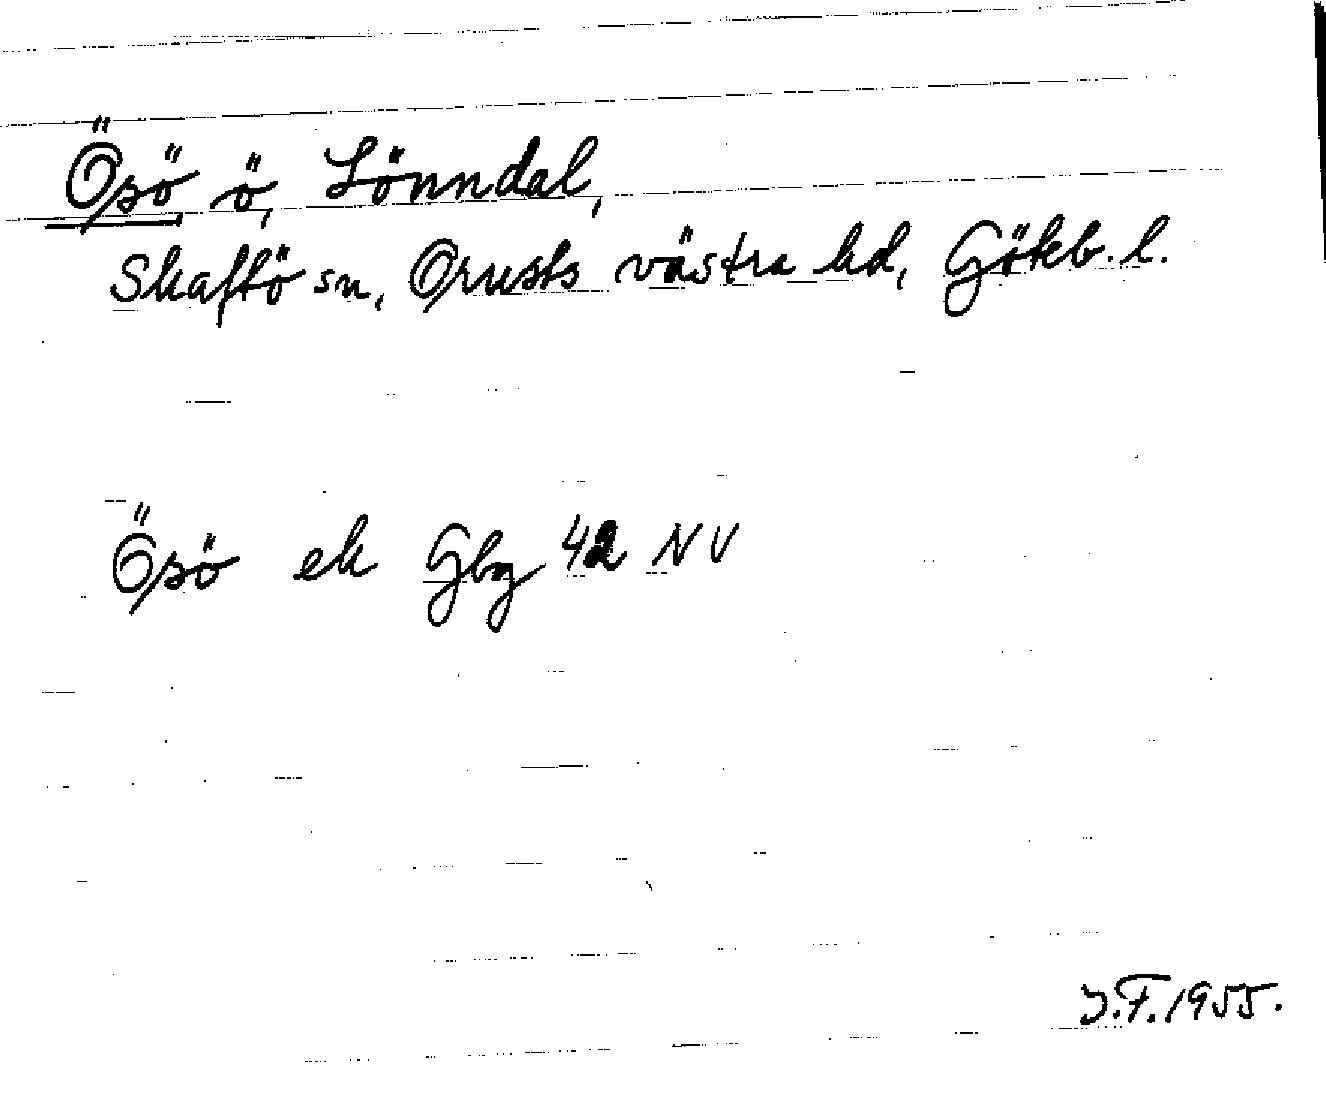 Ösö ö, Lönndal,
Skaftö sn, Orusts västra hd, Götkb. l.
Ösö ek Gbg 42 NV
J.F. 1955.